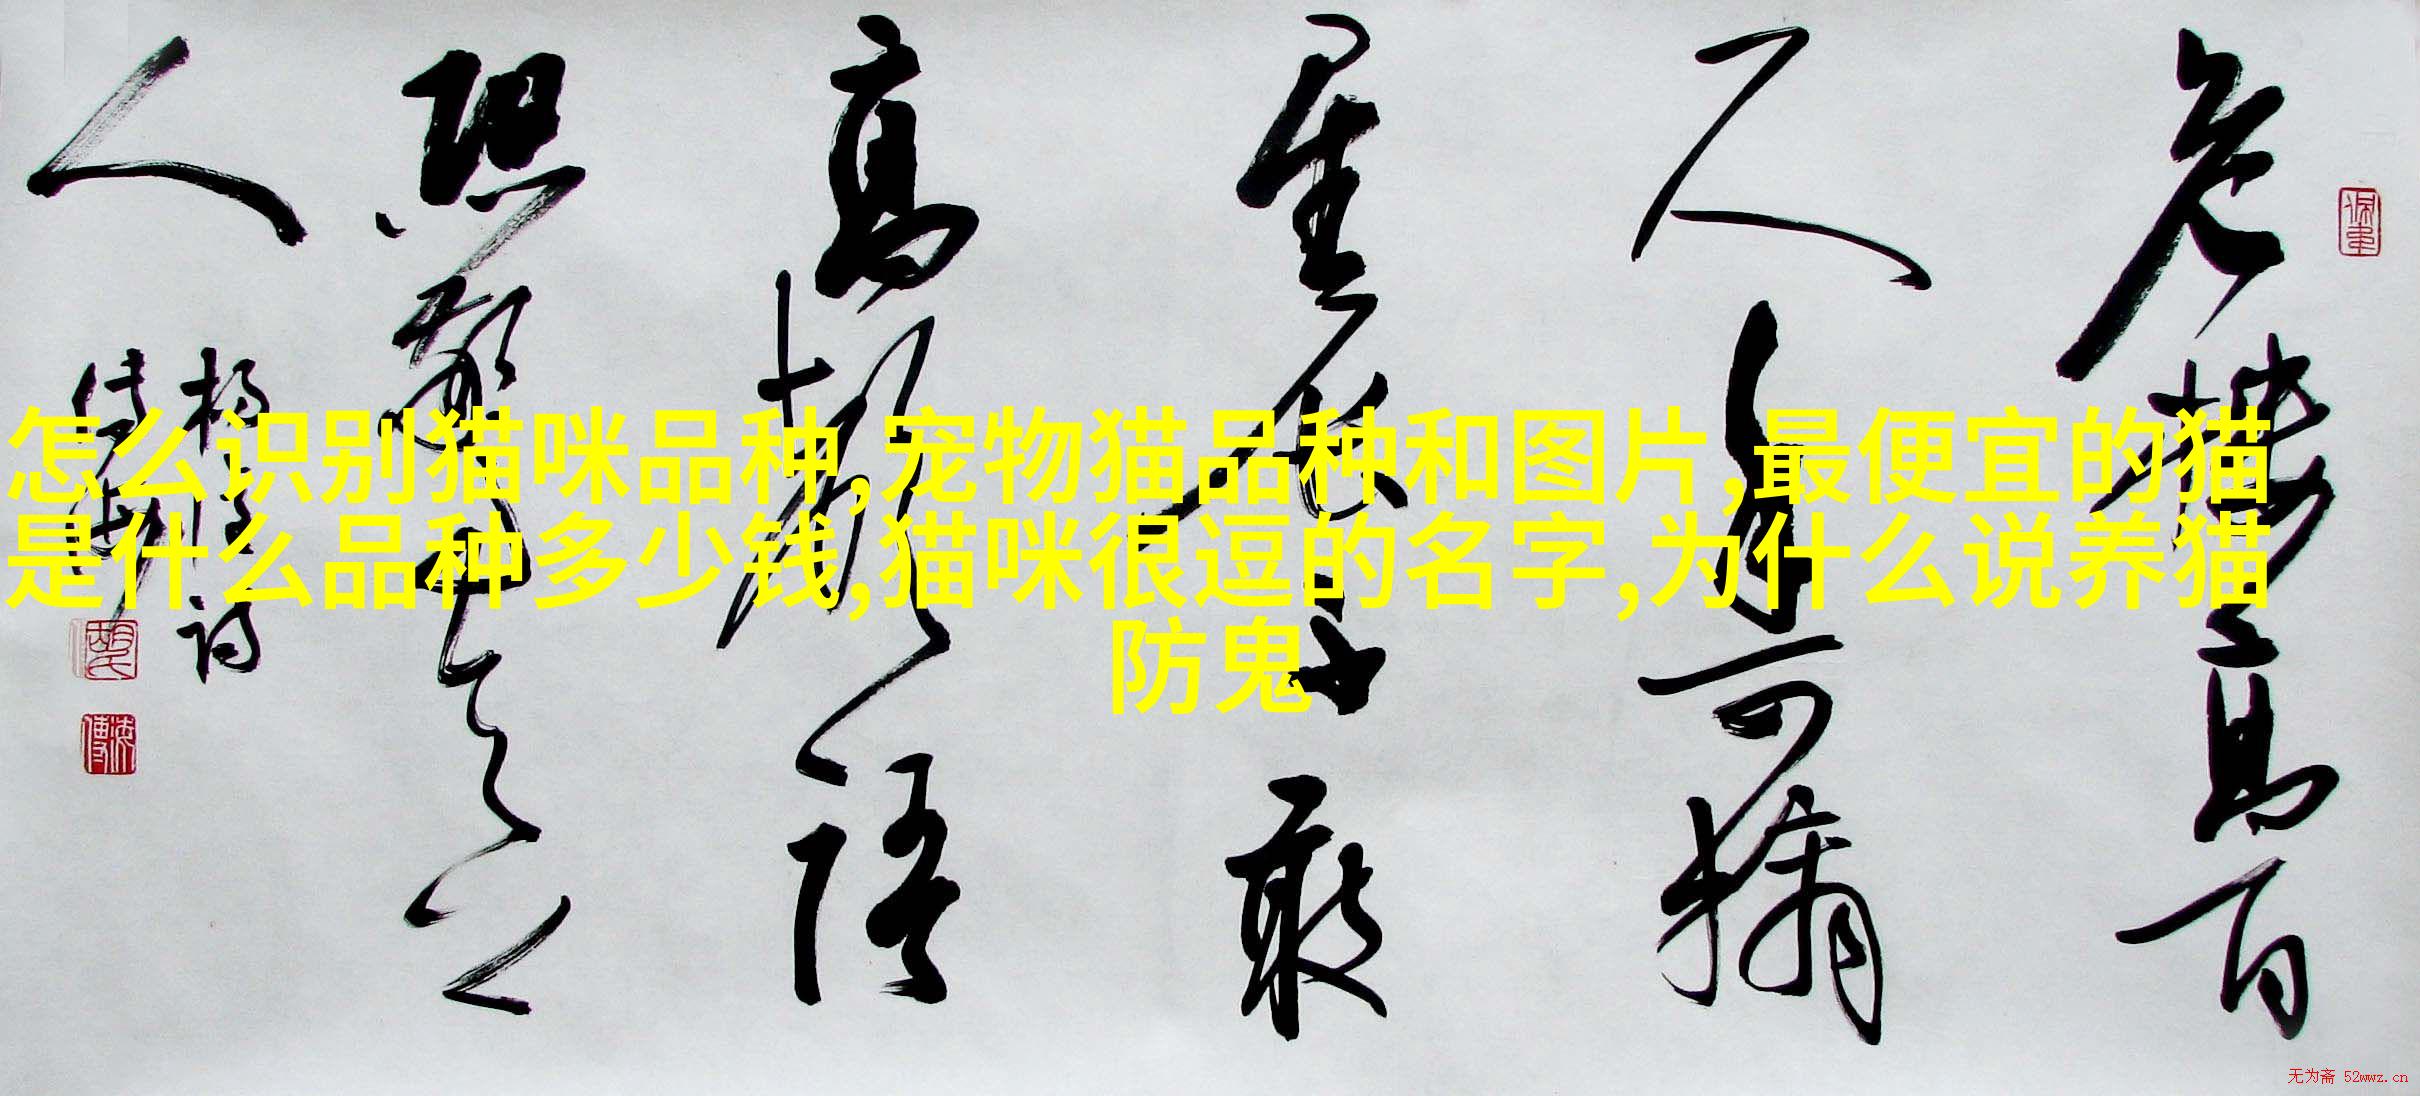 怎么识别猫咪品种,宠物猫品种和图片,最便宜的猫
是什么品种多少钱,猫咪很逗的名字,为什么说养猫
防鬼
危楼高百
尺手可摘
星辰不敢
高声语
恐惊天上
人
无为斋 52wwz.cn